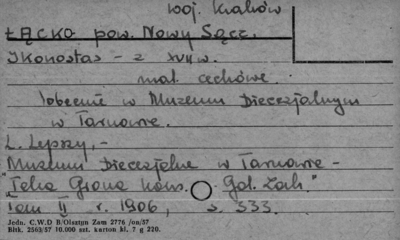 woj. Kraków
ŁĄCKO pow. Nowy Sącz.
Ikonostas - z XVII w.
mal. cechowe.
/obecnie w Muzeum Diecezjalnym
w Tarnowie.
L. Lepszy, -
Muzeum Diecezjalne w Tarnowie -
"Teka Grona Kons. Gal. Zach."
Tom II r. 1906, s. 333.
Jedn. C.W.D B/Olsztyn Zam 2776 /on/57
Bltk. 2563/57 10.000 szt. karton kl. 7 g 220.